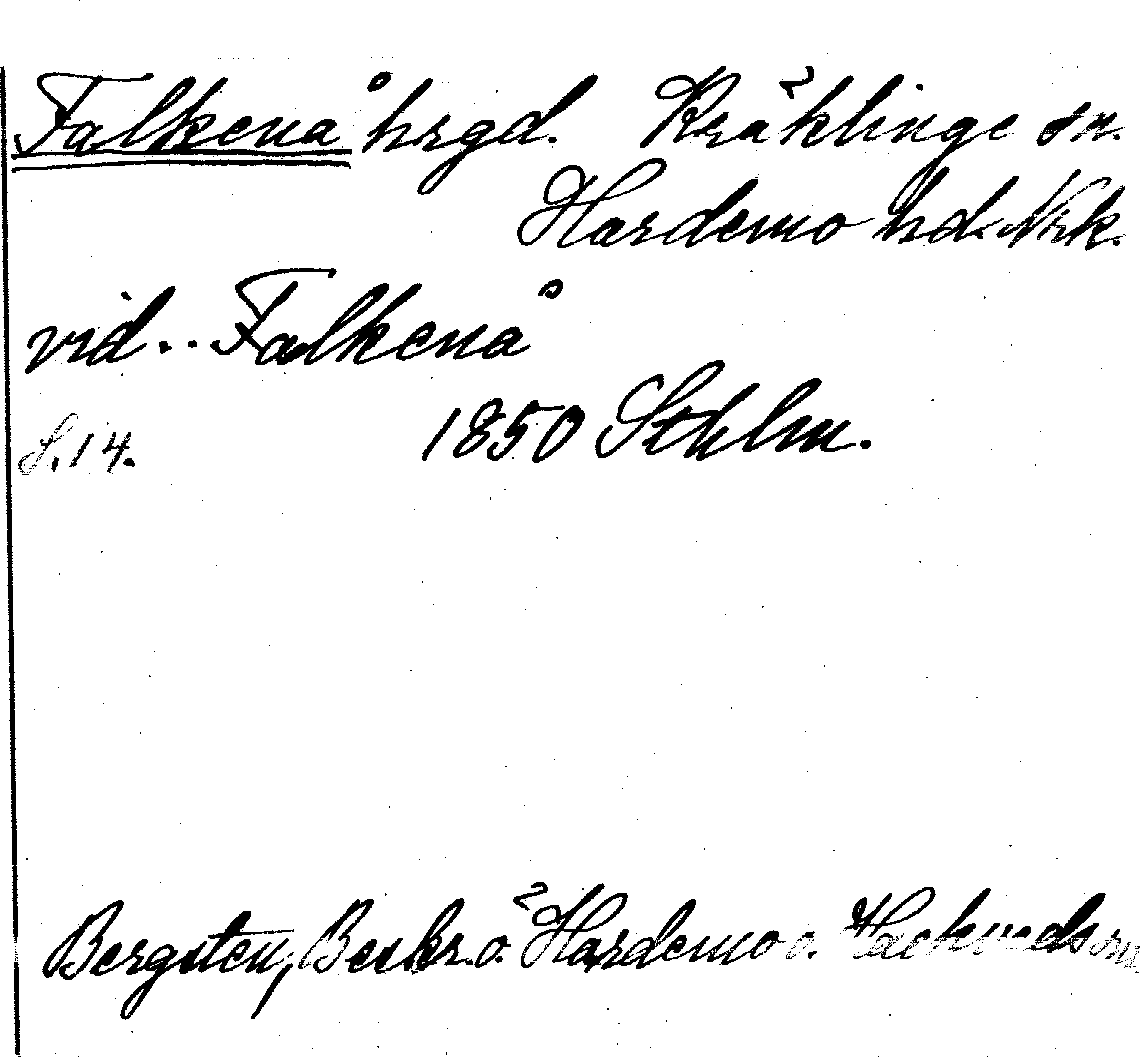 Falkenå hrgd. Kräklinge sn.
Hardemo hd. Nrk.
vid . . Falkenå
S. 14. 1850 Sthlm.
Bergsten, Beskr. ö. Hardemo o. Hackvads snr